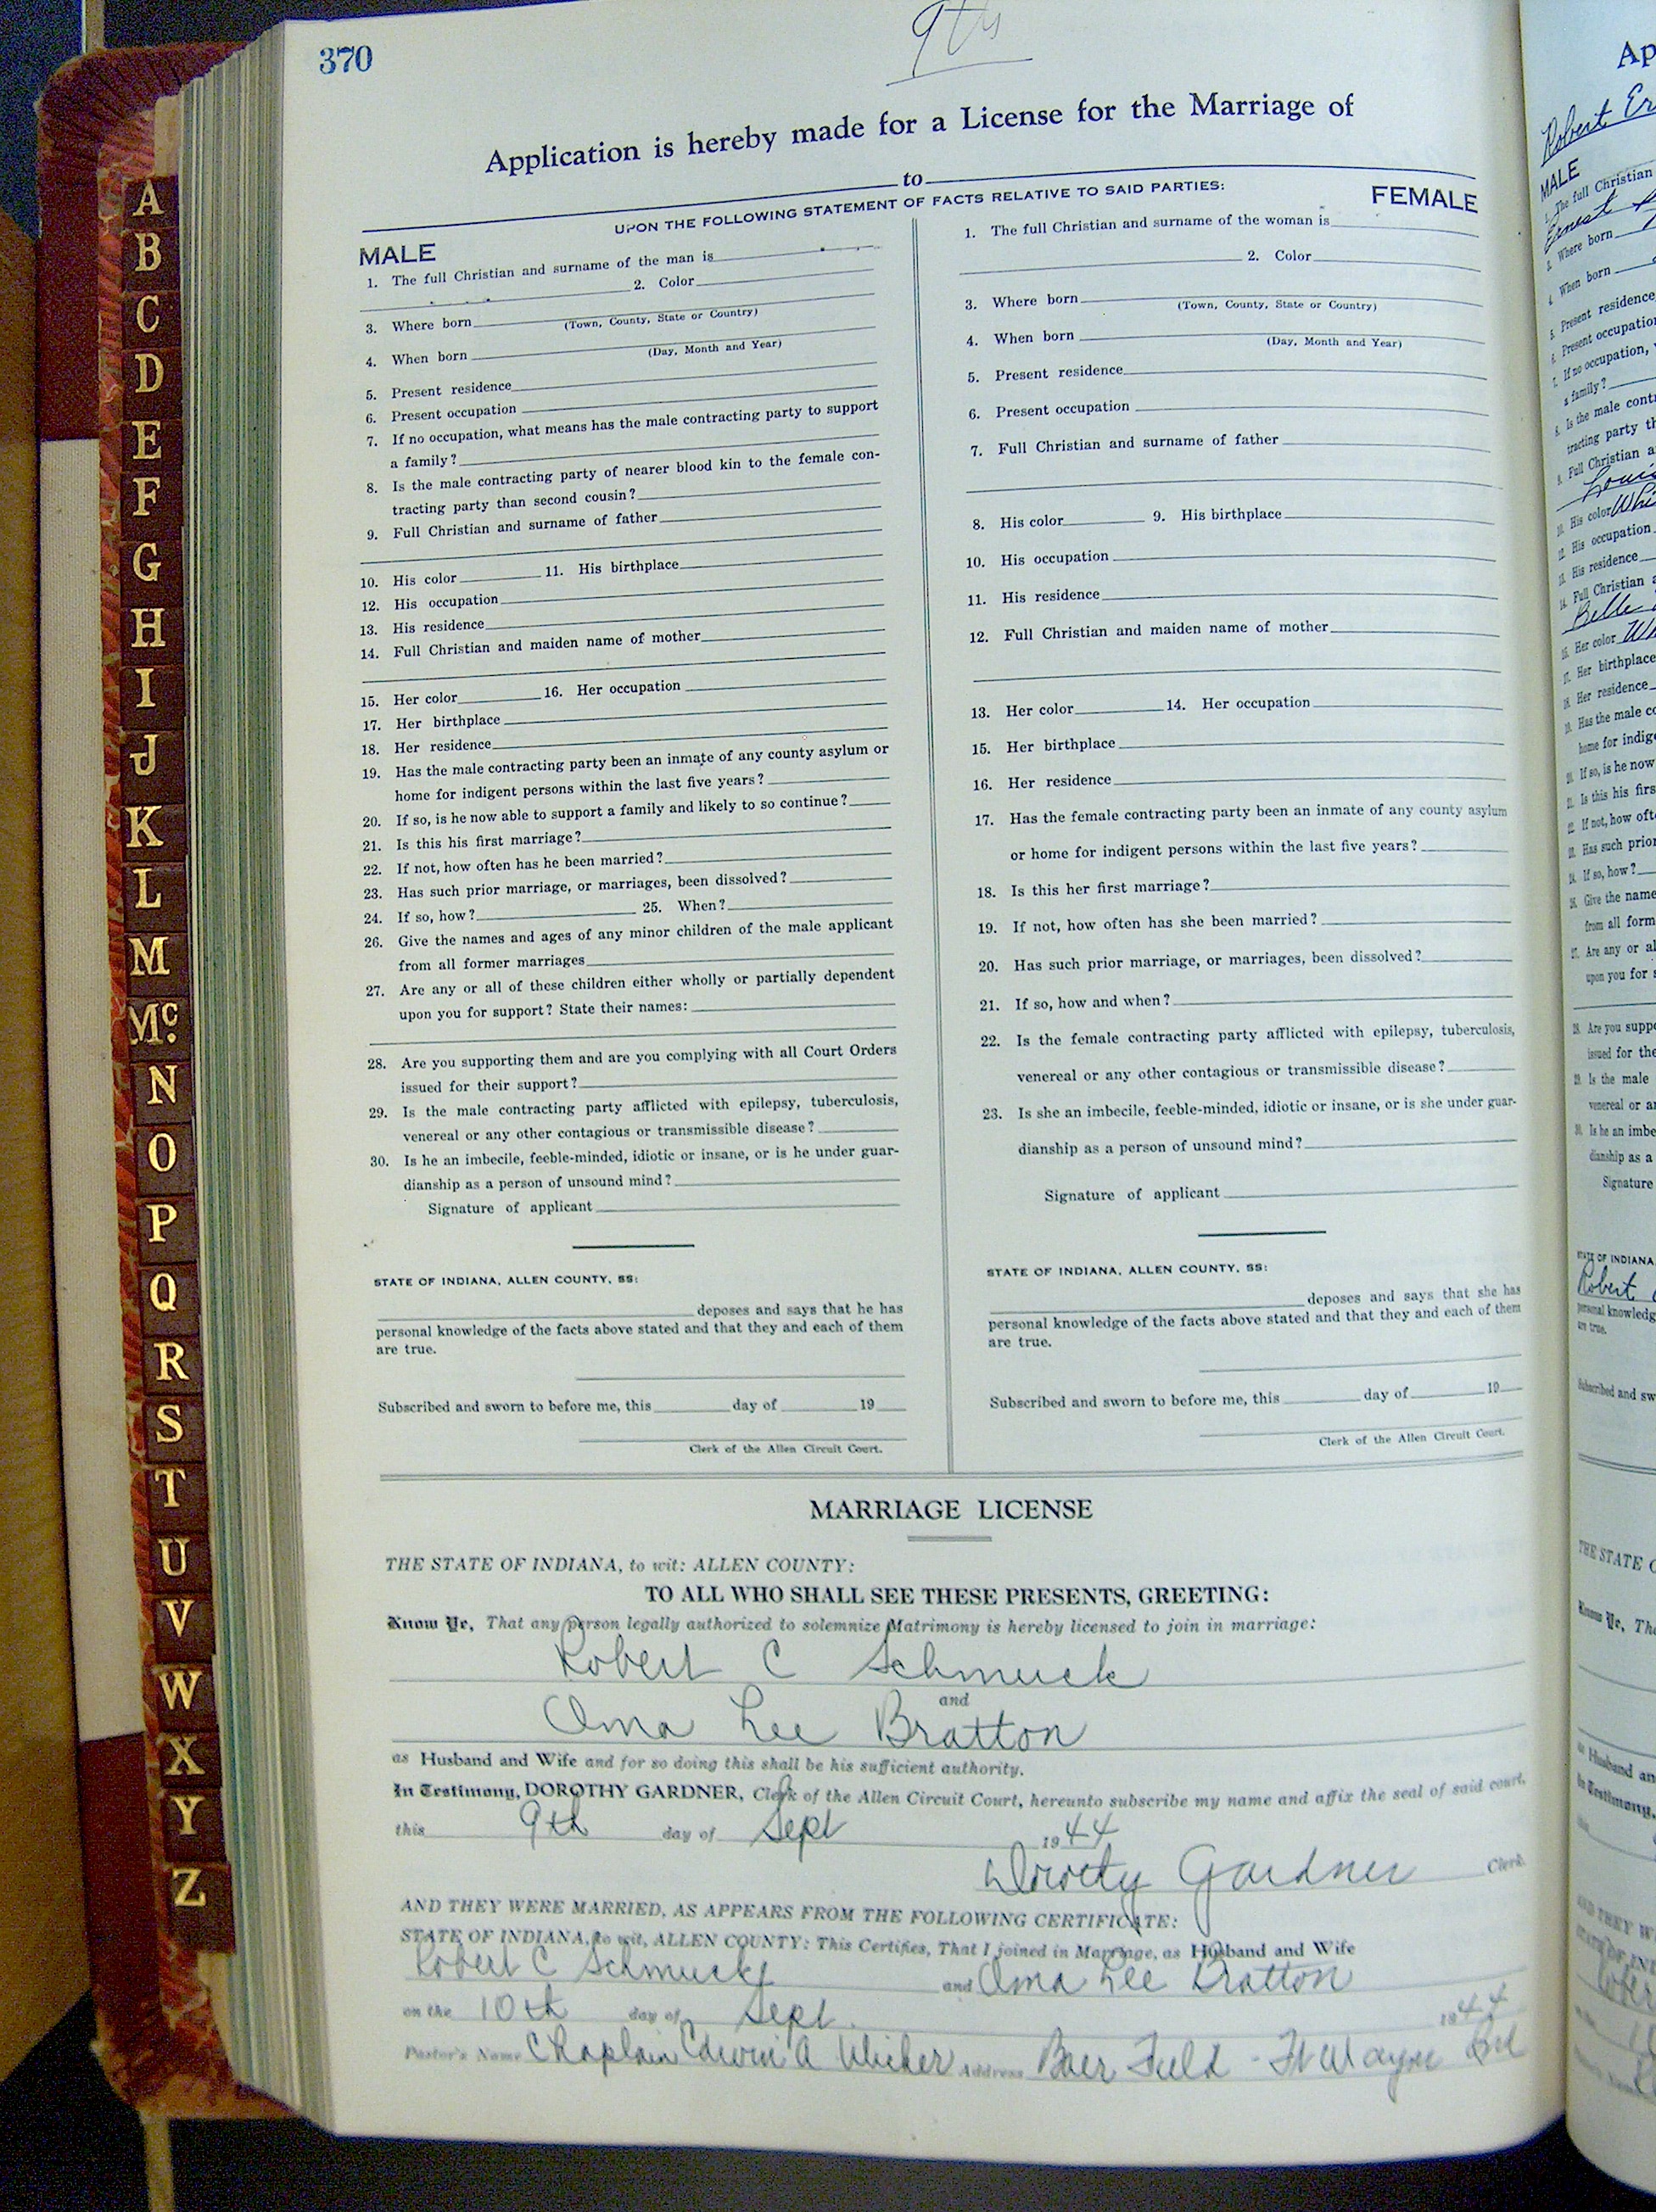 370
9th
Application is hereby made for a License for the Marriage of
to
UPON THE FOLLOWING STATEMENT OF FACTS RELATIVE TO SAID PARTIES:
MALE
1. The full Christian and surname of the man is
2. Color
3. Where born
(Town, County, State or Country)
4. When born
(Day, Month and Year)
5. Present residence
6. Present occupation
7. If no occupation, what means has the male contracting party to support
a family?
8. Is the male contracting party of nearer blood kin to the female con-
tracting party than second cousin?
9. Full Christian and surname of father
10. His color 11. His birthplace
12. His occupation
13. His residence
14. Full Christian and maiden name of mother
15. Her color 16. Her occupation
17. Her birthplace
18. Her residence
19. Has the male contracting party been an inmate of any county asylum or
home for indigent persons within the last five years?
20. If so, is he now able to support a family and likely to so continue?
21. Is this his first marriage?
22. If not, how often has he been married?
23. Has such prior marriage, or marriages, been dissolved?
24. If so, how? 25. When?
26. Give the names and ages of any minor children of the male applicant
from all former marriages
27. Are any or all of these children either wholly or partially dependent
upon you for support? State their names:
28. Are you supporting them and are you complying with all Court Orders
issued for their support?
29. Is the male contracting party afflicted with epilepsy, tuberculosis,
venereal or any other contagious or transmissible disease?
30. Is he an imbecile, feeble-minded, idiotic or insane, or is he under guar-
dianship as a person of unsound mind?
Signature of applicant
STATE OF INDIANA, ALLEN COUNTY, SS:
deposes and says that he has
personal knowledge of the facts above stated and that they and each of them
are true.
Subscribed and sworn to before me, this day of 19
Clerk of the Allen Circuit Court.
FEMALE
1. The full Christian and surname of the woman is
2. Color
3. Where born
(Town, County, State or Country)
4. When born
(Day, Month and Year)
5. Present residence
6. Present occupation
7. Full Christian and surname of father
8. His color 9. His birthplace
10. His occupation
11. His residence
12. Full Christian and maiden name of mother
13. Her color 14. Her occupation
15. Her birthplace
16. Her residence
17. Has the female contracting party been an inmate of any county asylum
or home for indigent persons within the last five years?
18. Is this her first marriage?
19. If not, how often has she been married?
20. Has such prior marriage, or marriages, been dissolved?
21. If so, how and when?
22. Is the female contracting party afflicted with epilepsy, tuberculosis,
venereal or any other contagious or transmissible disease?
23. Is she an imbecile, feeble-minded, idiotic or insane, or is she under guar-
dianship as a person of unsound mind?
Signature of applicant
STATE OF INDIANA, ALLEN COUNTY, SS:
deposes and says that she has
personal knowledge of the facts above stated and that they and each of them
are true.
Subscribed and sworn to before me, this day of 19
Clerk of the Allen Circuit Court.
MARRIAGE LICENSE
THE STATE OF INDIANA, to wit: ALLEN COUNTY:
TO ALL WHO SHALL SEE THESE PRESENTS, GREETING:
Know Ye, That any person legally authorized to solemnize Matrimony is hereby licensed to join in marriage:
Robert C Schmuck
and
Oma Lee Bratton
as Husband and Wife and for so doing this shall be his sufficient authority.
In Testimony, DOROTHY GARDNER, Clerk of the Allen Circuit Court, hereunto subscribe my name and affix the seal of said court,
this 9th day of Sept 1944
Dorothy Gardner Clerk
AND THEY WERE MARRIED, AS APPEARS FROM THE FOLLOWING CERTIFICATE:
STATE OF INDIANA, to wit, ALLEN COUNTY: This Certifies, That I joined in Marriage, as Husband and Wife
Robert C Schmuck and Oma Lee Bratton
on the 10th day of Sept. 1944
Pastor's Name Chaplain Edwin A Address Baer Field - Ft Wayne Ind
A
B
C
D
E
F
G
H
I
J
K
L
M
Mc
N
O
P
Q
R
S
T
U
V
W
X
Y
Z